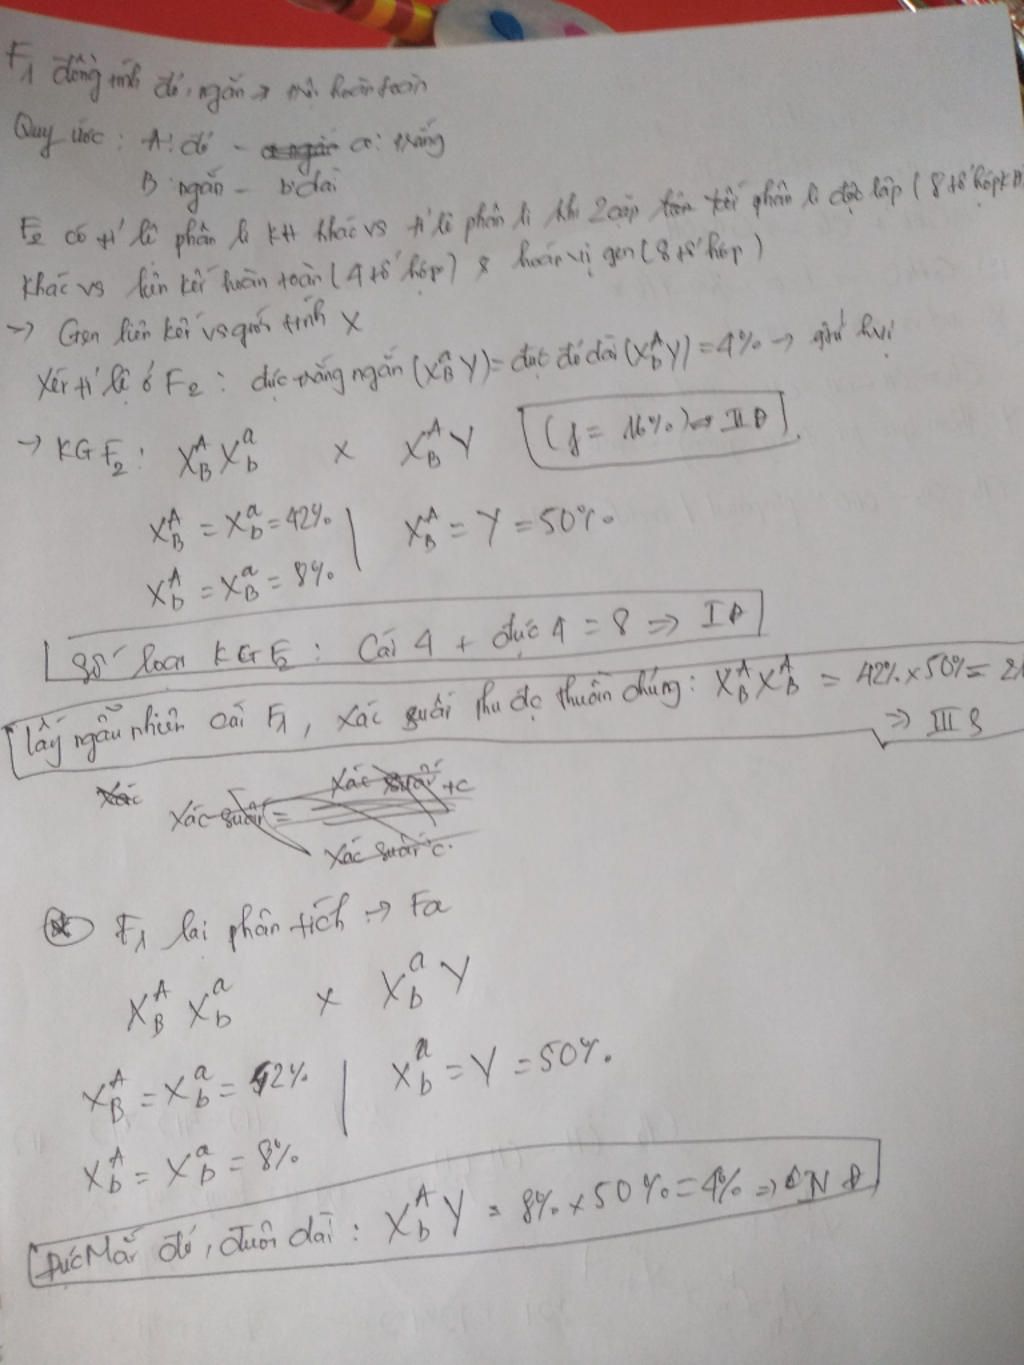 F1 đồng tính đỏ, ngắn → trội hoàn toàn
Quy ước : A: đỏ - a: trắng
B: ngắn - b: dài
F2 có tỉ lệ phân li KH khác vs tỉ lệ phân li khi 2 cặp phân li độc lập ( 8 tổ hợp KH )
Khác vs liên kết hoàn toàn ( 4 tổ hợp ) & hoán vị gen ( 8 tổ hợp )
→ Gen liên kết vs giới tính X
Xét tỉ lệ ở F2 : đực trắng ngắn (X^a_B Y) = đực đỏ dài (X^A_b Y) = 4% →
→ KG F2 : X^A_B X^a_b x X^A_B Y (f = 16%) → II Đ
X^A_B = X^a_b = 42% | X^A_B = Y = 50%
X^A_b = X^a_B = 8%
Số loại KG F2 : Cái 4 + đực 4 = 8 ⇒ I Đ
Lấy ngẫu nhiên cái F1, xác suất thu đc thuần chủng : X^A_B X^A_B = 42% x 50% = 21
⇒ III S
Xác
Xác suất = Xác suất +c
Xác suất c
* F1 lai phân tích → Fa
X^A_B X^a_b x X^a_b Y
X^A_B = X^a_b = 42% | X^a_b = Y = 50%.
X^A_b = X^a_b = 8%
Đực Mắt đỏ, đuôi dài : X^A_b Y = 8% x 50% = 4% ⇒ Đ